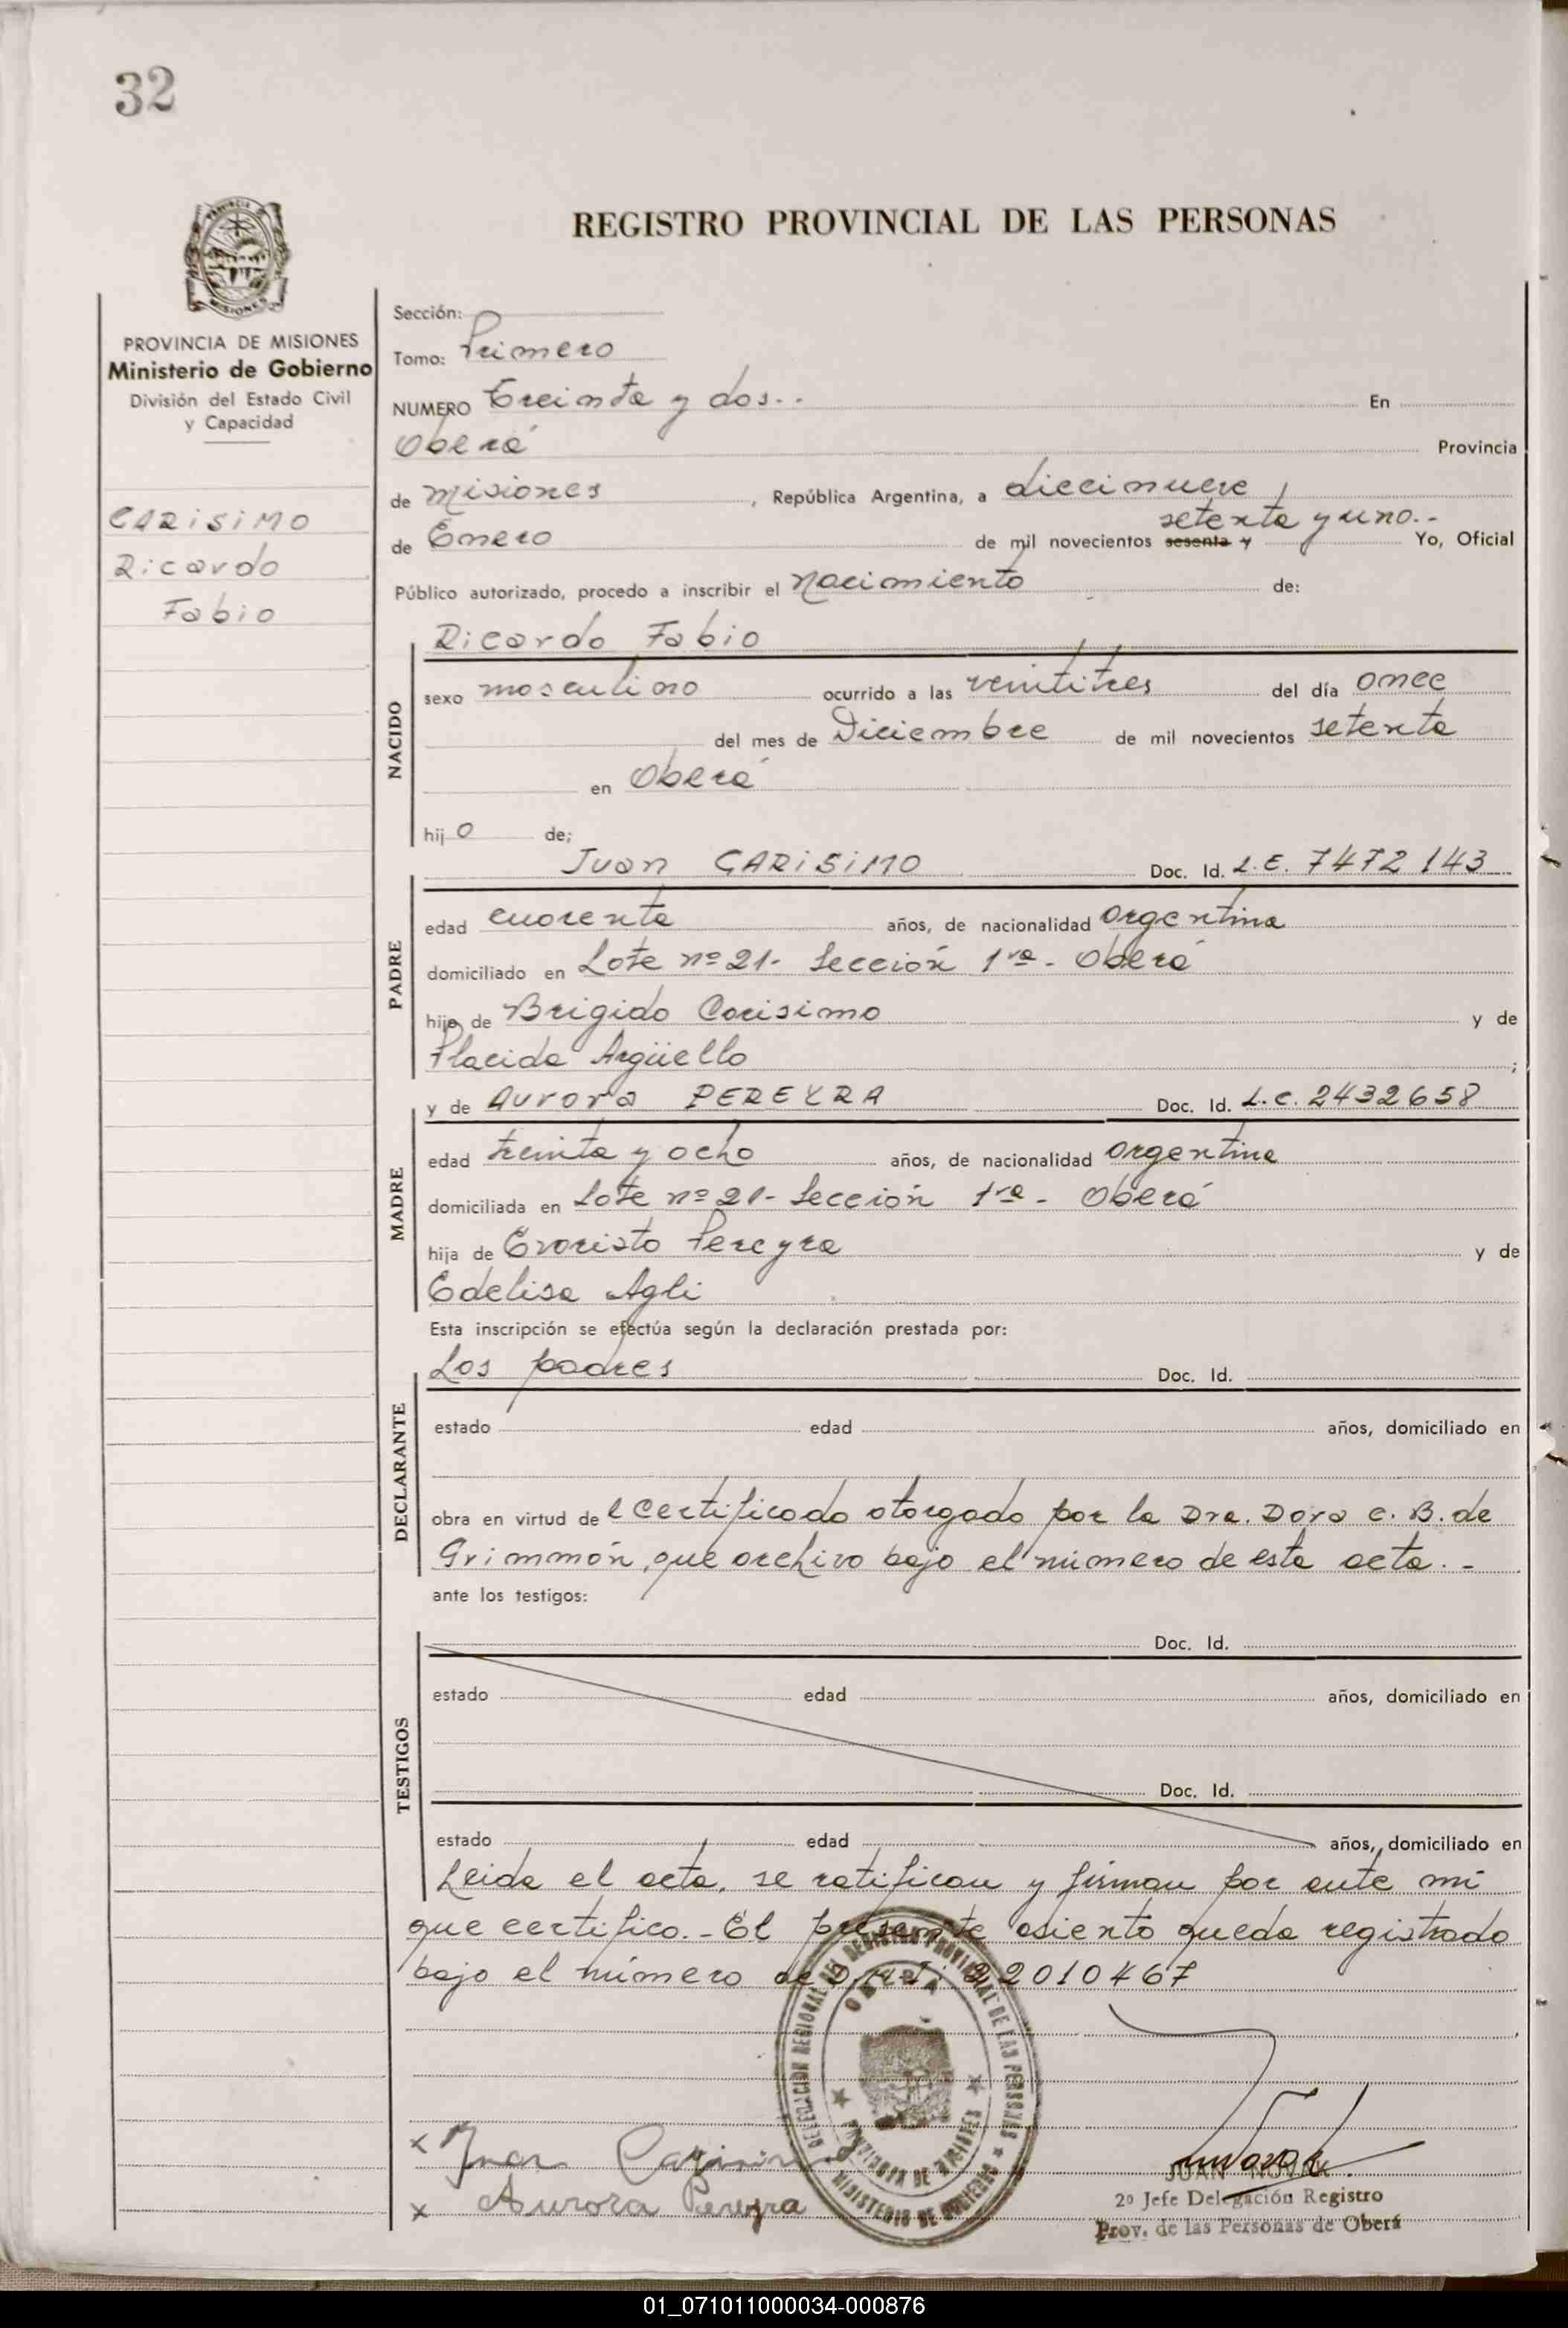 32
REGISTRO PROVINCIAL DE LAS PERSONAS
MISIONES
PROVINCIA DE MISIONES
Ministerio de Gobierno
División del Estado Civil
y Capacidad
CARISIMO
Ricardo
Fabio
Sección:
Tomo: Primero
NUMERO Treinta y dos.. En
Oberá Provincia
de Misiones, República Argentina, a diecinueve
setenta y uno.-
de Enero de mil novecientos sesenta y Yo, Oficial
Público autorizado, procedo a inscribir el nacimiento de:
Ricardo Fabio
NACIDO
sexo masculino ocurrido a las veintitres del día once
del mes de Diciembre de mil novecientos setenta
en Oberá
hijo de;
Juan CARISIMO Doc. Id. L.E. 7472143
PADRE
edad cuarenta años, de nacionalidad argentina
domiciliado en Lote nº 21- Sección 1ra - Oberá
hijo de Brigido Carisimo y de
Placida Argüello ;
y de Aurora PEREYRA Doc. Id. L.C. 2432658
MADRE
edad treinta y ocho años, de nacionalidad argentina
domiciliada en Lote nº 21- Sección 1ra - Oberá
hija de Evaristo Pereyra y de
Edelisa Agli
Esta inscripción se efectúa según la declaración prestada por:
Los padres Doc. Id.
DECLARANTE
estado edad años, domiciliado en
obra en virtud del certificado otorgado por la Dra. Dora C. B. de
Grimmón, que archivo bajo el número de esta acta. -
ante los testigos:
Doc. Id.
TESTIGOS
estado edad años, domiciliado en
Doc. Id.
estado edad años, domiciliado en
Leida el acta, se ratifican y firman por ante mi
que certifico.- El presente asiento queda registrado
bajo el número de D.N.I. 22010467
DELEGACION REGIONAL DEL REGISTRO PROVINCIAL DE LAS PERSONAS
OBERA
PROVINCIA DE MISIONES
MINISTERIO DE GOBIERNO
x Juan Carisimo
x Aurora Pereyra
JUAN NOVAK
2º Jefe Delegación Registro
Prov. de las Personas de Oberá
01_071011000034-000876